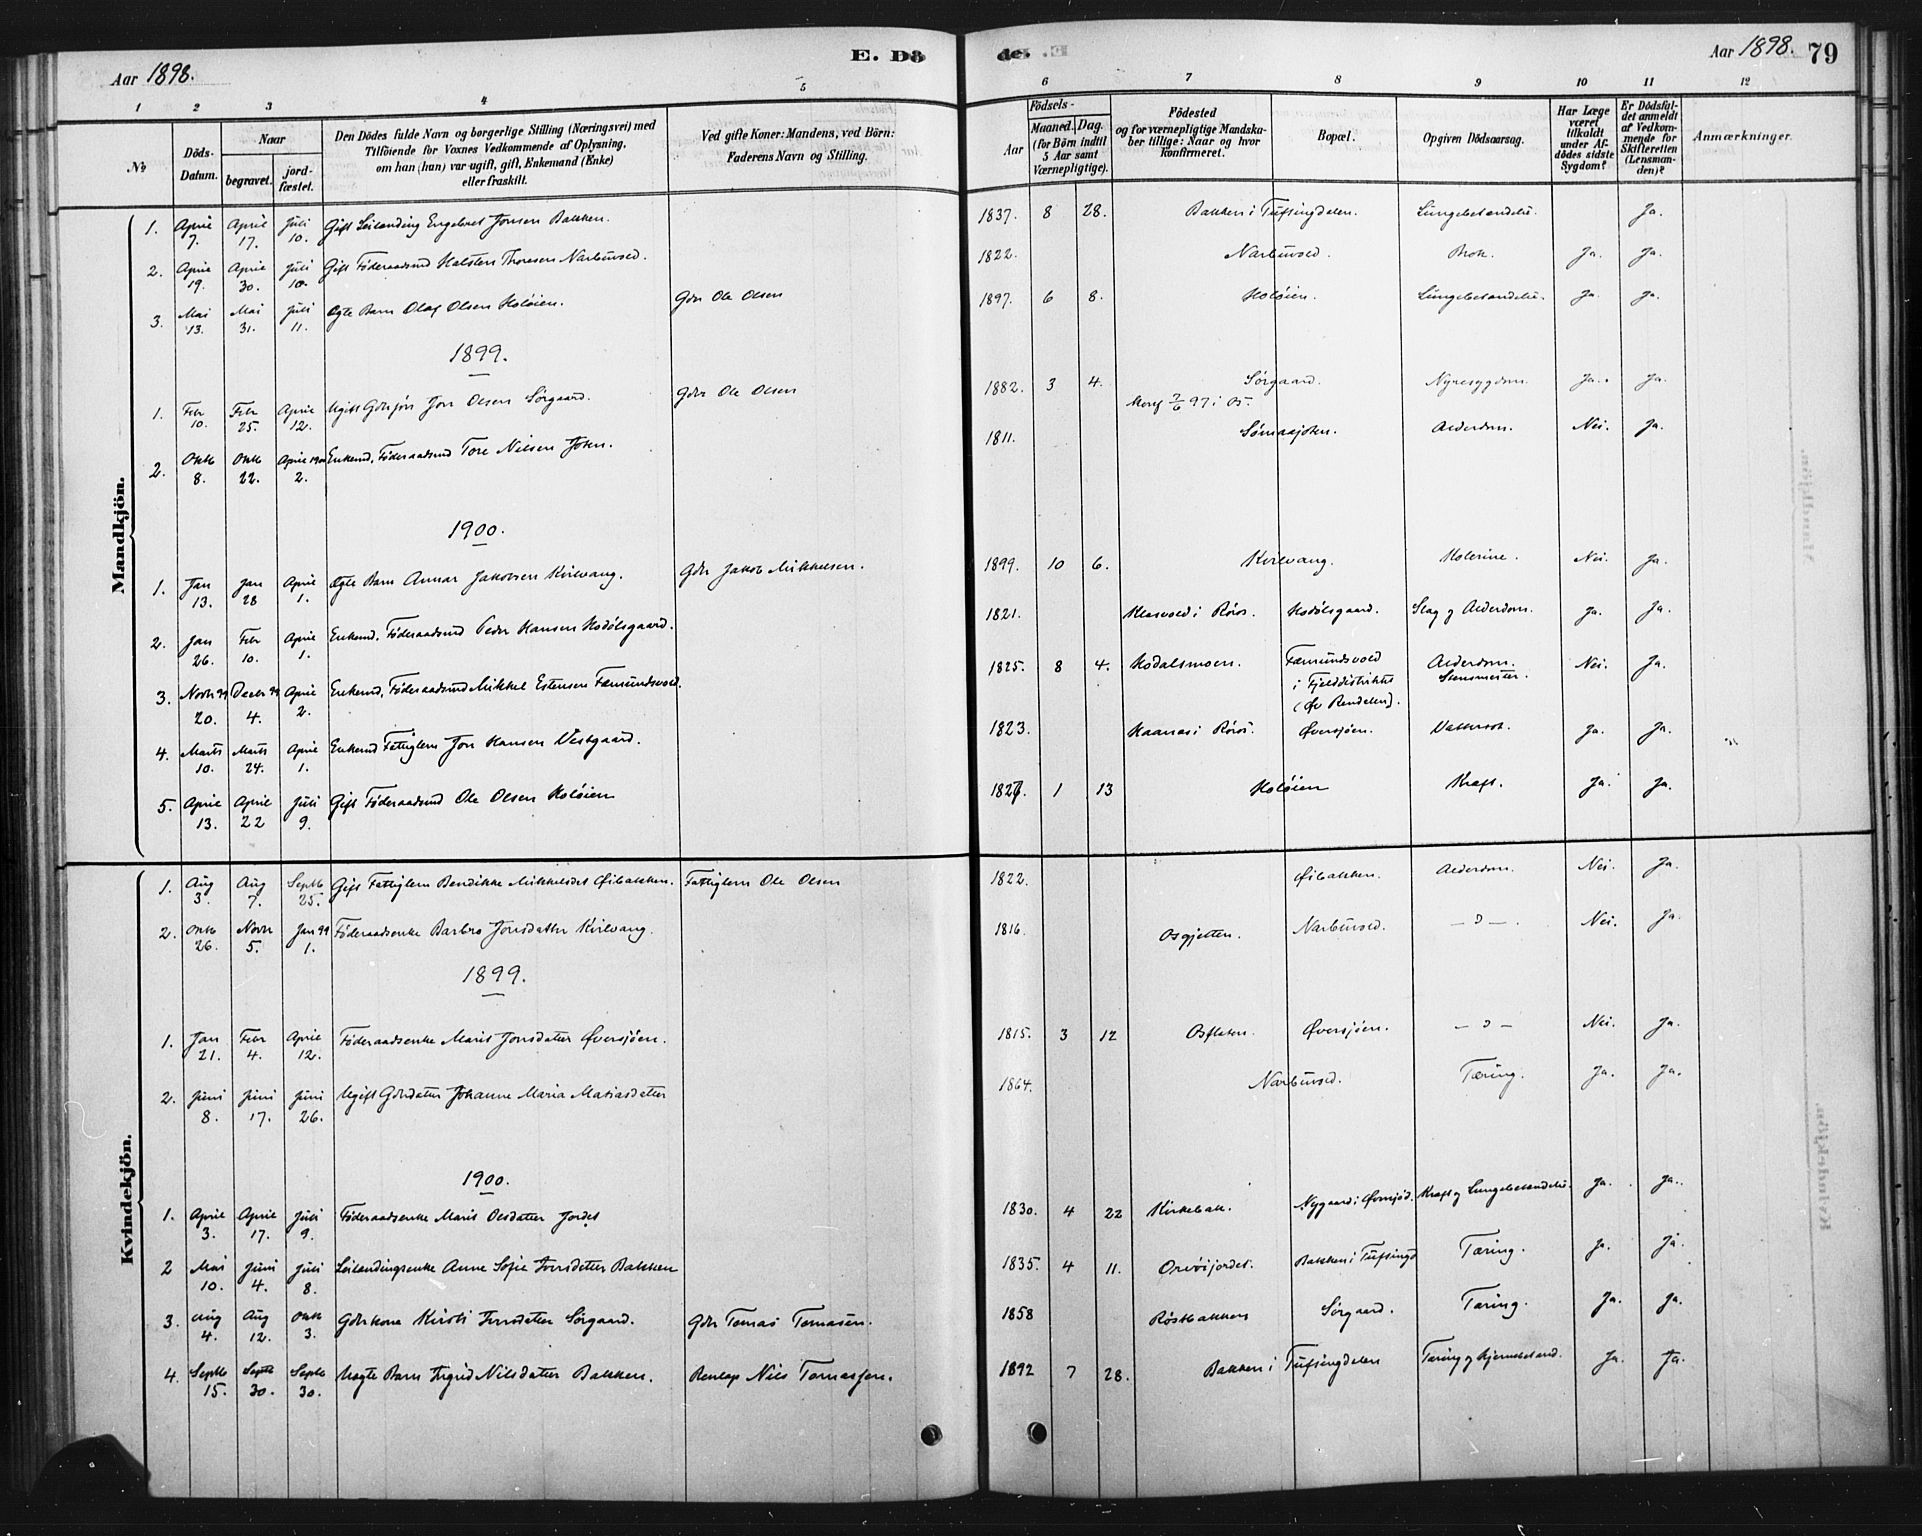 Aar 1898.
E. Döde.
Aar 1898. 79
1 2 3 4 5 6 7 8 9 10 11 12
No
Döds-Datum.
Naar
begravet.
jordfæstet.
Den Dödes fulde Navn og borgerlige Stilling (Næringsvei) med
Tilföiende for Voxnes Vedkommende af Oplysning,
om han (hun) var ugift, gift, Enkemand (Enke)
eller fraskilt.
Ved gifte Koner: Mandens, ved Börn:
Faderens Navn og Stilling.
Födsels-
Aar
Maaned. Dag.
(for Börn indtil
5 Aar samt
Værnepligtige).
Födested
og for værnepligtige Mandska-
ber tillige: Naar og hvor
konfirmeret.
Bopæl.
Opgiven Dödsaarsag.
Har Læge
været
tilkaldt
under Af-
dödes sidste
Sygdom?
Er Dödsfal-
det anmeldt
af Vedkom-
mende for
Skifteretten
(Lensman-
den)?
Anmærkninger.
Mandkjön.
1. April 7. April 17. Juli 10. Gift Leilending Engebret Jonsen Bakken. 1837. 8 28. Bakken i Tufsingdalen. Lungebetændelse. Ja.
2. April 19. April 30. Juli 10. Gift Föderaadsmd Halsten Thoresen Narbuvold. 1822. Narbuvold. Brok. Ja. Ja.
3. Mai 13. Mai 31. Juli 11. Ægte Barn Olaf Olsen Holöien. Gdbr Ole Olsen 1897. 6 8. Holöien. Lungebetændelse. Ja. Ja.
1899.
1. Febr 10. Febr 25. April 12. Ugift Gdbrsön Jon Olsen Sörgaard. Gdbr Ole Olsen 1882. 3 4. Sörgaard. Nyresygdom. Ja. Ja.
7/6 97 i Os.
2. Oktb 8. Oktb 22. April 1900 2. Enkemd, Föderaadsmd Tore Nilsen Joten. 1811. Sömaajoten. Alderdom. Nei. Ja.
1900.
1. Jan 13. Jan 28 April 1. Ægte Barn Annar Jakobsen Kirlvang. Gdbr Jakob Mikkelsen. 1899. 10 6. Kirlvang. Kolerine. Nei. Ja.
2. Jan 26. Febr 10. April 1. Enkemd, Föderaadsmd Peder Hansen Hodölsgaard. 1821. Klasvold i Röros. Hodölsgaard. Slag og Alderdom. Ja. Ja.
3. Novbr 99 20. Decbr 99 4. April 2. Enkemd, Föderaadsmd Mikkel Estensen Fæmundsvold. 1825. 8 4. Hodalsmoen. Fæmundsvold
i Fjelddistriktet
(Øv Rendalen).
Alderdom.
Nei. Ja.
4. Marts 10. Marts 24. April 1. Enkemd Fattiglem Jon Hansen Vestgaard. 1823. Kaanas i Röros. Øversjöen. Vattersot. Ja. Ja.
5. April 13. April 22 Juli 9. Gift Föderaadsmd Ole Olsen Holöien 1827. 1 13 Holöien Kræft. Ja. Ja.
Kvindekjön.
1. Aug 3. Aug 7. Septb 25. Gift Fattiglem Bendikke Mikkelsdtr Øibakken. Fattiglem Ole Olsen 1822. Øibakken. Alderdom. Nei. Ja.
2. Oktb 26. Novbr 5. Jan 99 1. Föderaadsenke Barbro Jonsdatter Kirlvang. 1816. Osgjelten. Narbuvold. — D —. Nei. Ja.
1899.
1. Jan 21. Febr 4. April 12. Föderaadsenke Marit Jonsdatter Øversjöen. 1815. 3 12 Osflaten. Øversjöen. — D — Nei. Ja.
2. Juni 8. Juni 17. Juni 26. Ugift Gdbrdatter Johanne Maria Matiasdatter 1864. Narbuvold. Tæring. Ja. Ja.
1900.
1. April 3. April 17. Juli 9. Föderaadsenke Marit Olsdatter Jordet 1830. 4 22 Kirkebak. Nygaard i Øversjöd. Kræft og Lungebetændelse. Ja. Ja.
2 Mai 10. Juni 4. Juli 8. Leilendingsenke Anne Sofie Jonsdatter Bakken 1835. 4 11. Bakken i Tufsingd Tæring. Ja. Ja.
3. Aug 4. Aug 12. Oktb 3. Gdbrkone Kirsti Jonsdatter Sörgaard. Gdbr Tomas Tomasen. 1858 Röstbakken Sörgaard. Tæring. Ja. Ja.
4. Septb 15. Septb 30. Septb 30. Uægte Barn Ingrid Nilsdatter Bakken. Renlap Nils Tomassen. 1892 7 28. Bakken i Tufsingdalen Tæring og Hjernebetænd. Ja. Ja.